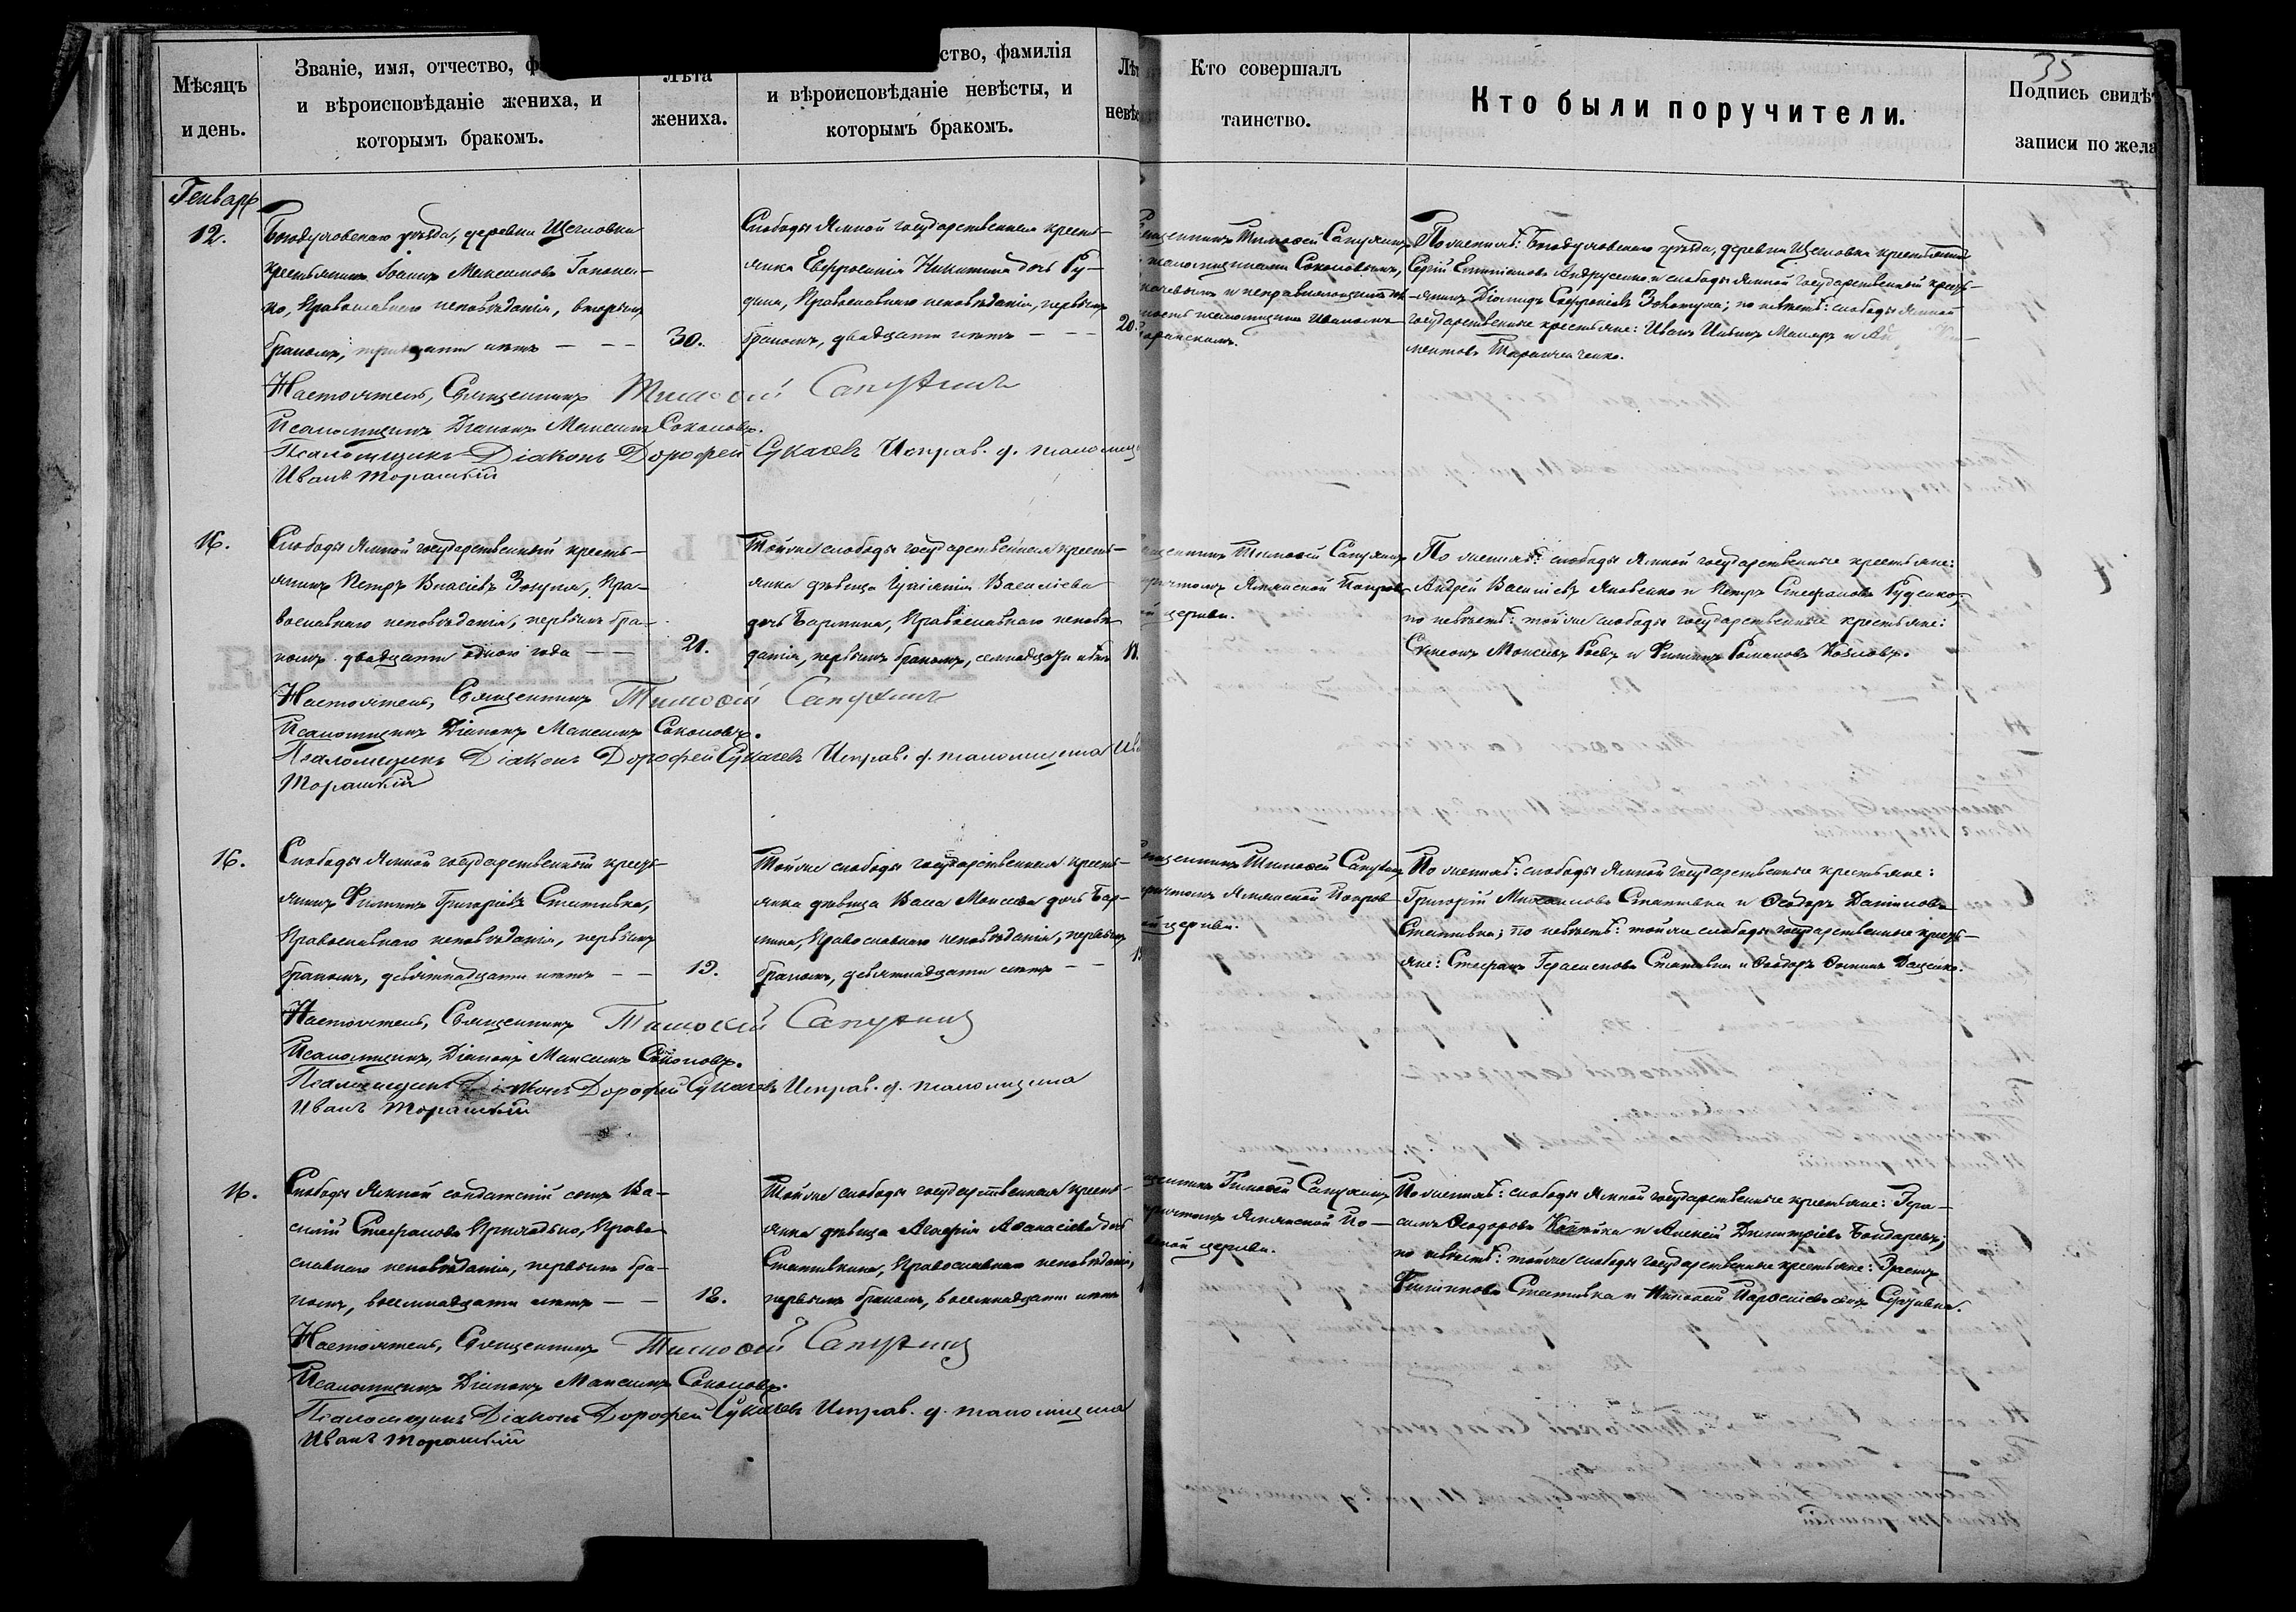 35
Мѣсяцъ
и день.
Званіе, имя, отчество,
и вѣроисповѣданіе жениха, и
которымъ бракомъ.
Лѣта
жениха.
ство, фамилія
и вѣроисповѣданіе невѣсты, и
которымъ бракомъ.
Лѣт
невѣс
Кто совершалъ
таинство.
Кто были поручители.
Подпись свидѣт
записи по жела
Генварь
12.
уѣзда, деревни Щегловки
крестьянинъ Іоаннъ Максимовъ Гапонен-
ко, Православнаго исповѣданія, вторымъ
бракомъ, тридцати лѣтъ — —
30.
Слободы Ямной государственная кресть-
янка Евфросинія Никитина дочь Ру-
дина, Православнаго исповѣданія, первымъ
бракомъ, двадцати лѣтъ — —
20.
Тимофей Сапухинъ
Соколовымъ,
По женихѣ: уѣзда, деревни Щегловки
Сергій Андрусенко и слободы Ямной государственный кресть-
янинъ Діомидъ по невѣстѣ: слободы Ямной
государственные крестьяне: Иванъ
Настоятель, Священникъ Тимофей Сапухинъ
Псаломщикъ Діаконъ Максимъ Соколовъ.
Псаломщикъ Діаконъ Дорофей Сукачевъ Исправ. д. псаломщ
Иванъ Торанскій
16.
Слободы Ямной государственный кресть-
янинъ Петръ Власіевъ Зозуля, Пра-
вославнаго исповѣданія, первымъ бра-
комъ двадцати одного года — —
21.
Тойже слободы государственная кресть-
янка дѣвица Васильева
дочь Православнаго исповѣ-
данія, первымъ бракомъ, семнадцати лѣтъ
Тимофей Сапухинъ
причтомъ Ямянской Покров
церкви.
По женихѣ: слободы Ямной государственные крестьяне:
Андрей Василіевъ Яковенко и Петръ Стефановъ Руденко;
по невѣстѣ: тойже слободы государственные крестьяне:
Симеонъ Моисеевъ и Филиппъ Романовъ Козловъ.
Настоятель, Священникъ Тимофей Сапухинъ
Псаломщикъ Діаконъ Максимъ Соколовъ.
Псаломщикъ Діаконъ Дорофей Сукачевъ Исправ. д. псаломщика Ива
Торанскій
16.
Слободы Ямной государственный кресть-
янинъ Филиппъ Григоріевъ Стативка,
Православнаго исповѣданія, первымъ
бракомъ, девятнадцати лѣтъ — —
19.
Тойже слободы государственная кресть-
янка дѣвица Васса Моисеева дочь
Православнаго исповѣданія, первымъ
бракомъ, девятнадцати лѣтъ — —
Тимофей Сапухинъ
причтомъ Ямянской Покров
церкви.
По женихѣ: слободы Ямной государственные крестьяне:
Григорій Стативка и Ѳеодоръ Даніиловъ
Стативка; по невѣстѣ: тойже слободы государственные кресть-
яне: Стефанъ Герасимовъ Стативка и Ѳеодоръ
Настоятель, Священникъ Тимофей Сапухинъ
Псаломщикъ, Діаконъ Максимъ Соколовъ.
Псаломщикъ Діаконъ Дорофей Сукачевъ Исправ. д. псаломщика
Иванъ Торанскій
16.
Слободы Ямной солдатскій сынъ Ва-
силій Стефановъ Православ-
славнаго исповѣданія, первымъ бра-
комъ, восемнадцати лѣтъ — —
18.
Тойже слободы государственная кресть-
янка дѣвица Агафія Аѳанасіева дочь
Стативкина, Православнаго исповѣданія,
первымъ бракомъ, восемнадцати лѣтъ
Тимофей Сапухинъ
причтомъ Ямянской По-
церкви.
По женихѣ: слободы Ямной государственные крестьяне: Гера-
симъ Ѳеодоровъ и Алексій Димитріевъ Бондаревъ;
по невѣстѣ: тойже слободы государственные крестьяне:
Филипповъ Стативка и Николай
Настоятель, Священникъ Тимофей Сапухинъ
Псаломщикъ Діаконъ Максимъ Соколовъ.
Псаломщикъ Діаконъ Дорофей Сукачевъ Исправ. д. псаломщика
Иванъ Торанскій